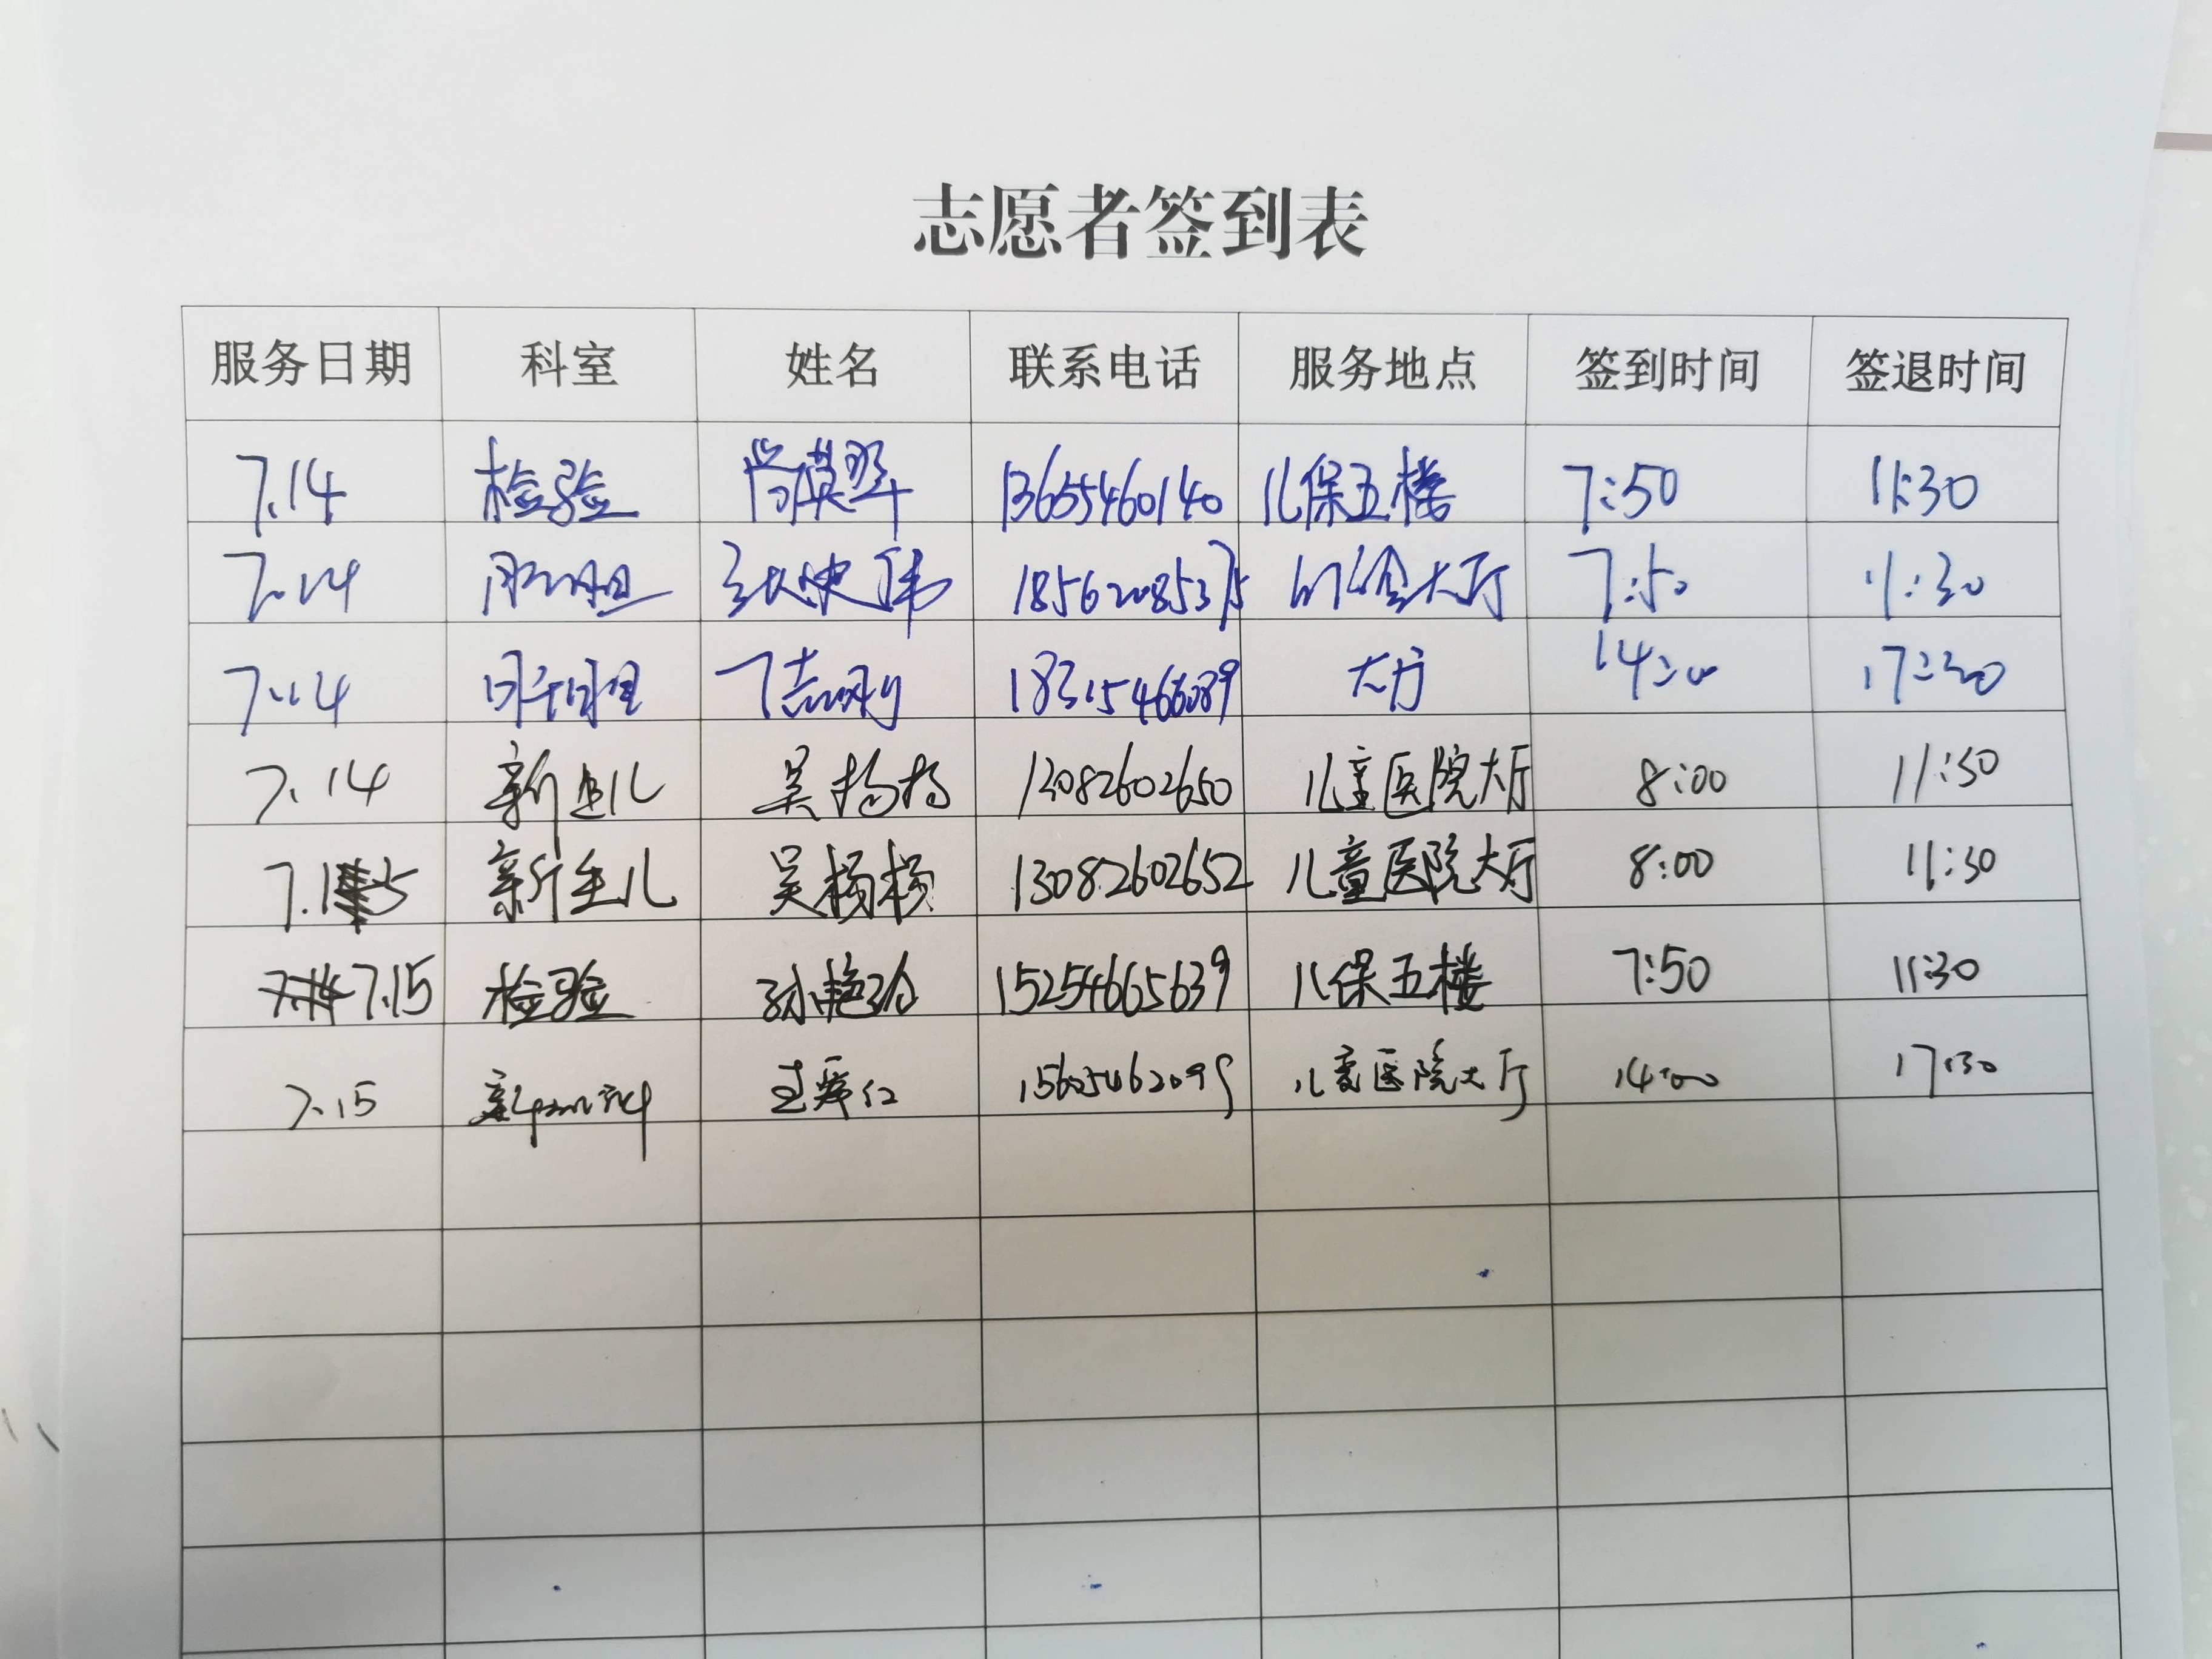 志愿者签到表
服务日期 科室 姓名 联系电话 服务地点 签到时间 签退时间
7.14 检验 尚 13655460140 儿保五楼 7:50 11:30
7.14 肝胆 张 伟 18562085375 门诊大厅 7:50 11:30
7.14 丁志刚 18315466089 大厅 14:00 17:30
7.14 新生儿 吴杨杨 13082602650 儿童医院大厅 8:00 11:30
7.15 新生儿 吴杨杨 13082602652 儿童医院大厅 8:00 11:30
7.15 检验 孙艳 15254665639 儿保五楼 7:50 11:30
7.15 儿童医院大厅 14:00 17:30